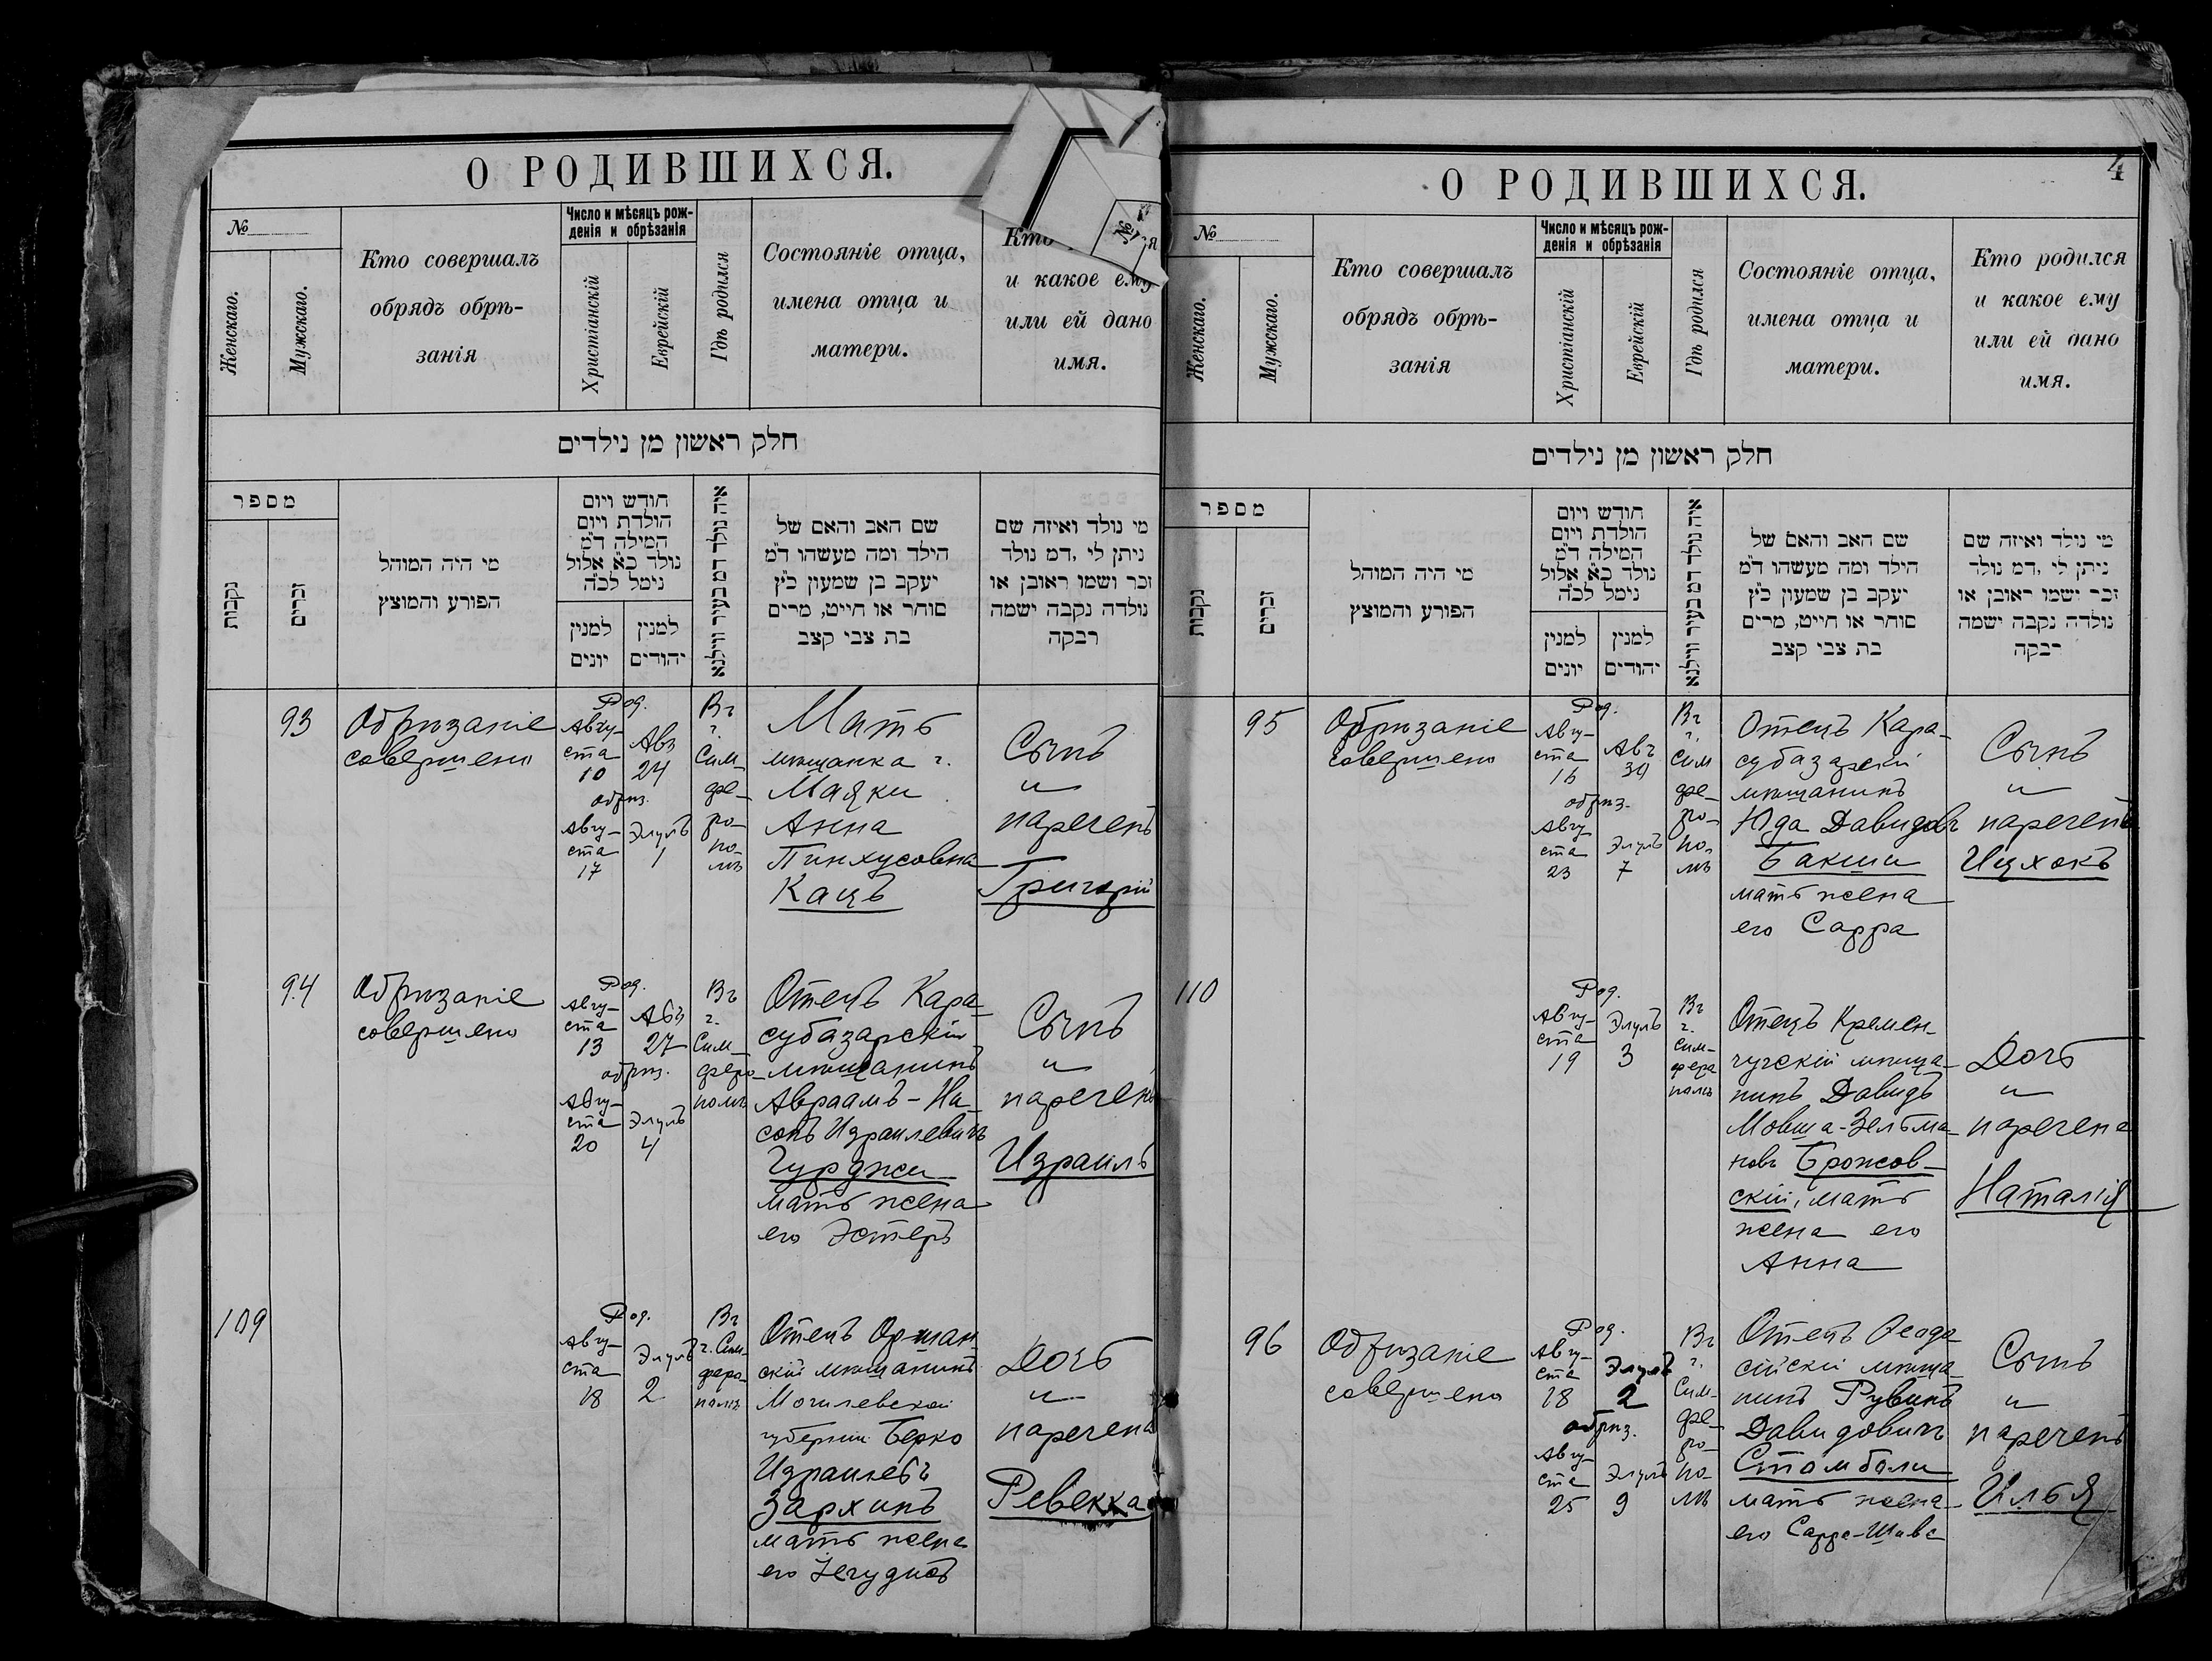 О РОДИВШИХСЯ.
№
Женскаго.
Мужскаго.
Кто совершалъ
обрядъ обрѣ-
занія
Число и мѣсяцъ рож-
денія и обрѣзанія
Христіанскій
Еврейскій
Гдѣ родился
Состояніе отца,
имена отца и
матери.
Кто
и какое ему
или ей дано
имя.
חלק ראשון מן נילדים
מספר
נקבות
זכרים
מי היה המוהל
הפורע והמוצץ
חודש ויום
הולדת ויום
המילה ד״מ
נולד כ״א אלול
נימל לכ״ה
למנין
יונים
למנין
יהודים
איה נולד דמ בעיר ווילנא
שם האב והאם של
הילד ומה מעשהו ד״מ
יעקב בן שמעון כ״ץ
סוחר או חייט, מרים
בת צבי קצב
מי נולד ואיזה שם
ניתן לי ,דמ נולד
זכר ושמו ראובן או
נולדה נקבה ישמה
רבקה
93
Обрѣзаніе
совершено
Род.
Авгу-
ста
10
Авъ
24
обрѣз.
Авгу-
ста
17
Элулъ
1
Въ
г.
Сим-
фе-
ро-
по-
лѣ
Мать
мѣщанка г.
Маяки
Анна
Пинхусовна
Кацъ
Сынъ
и
нареченъ
Григорій
94
Обрѣзаніе
совершено
Род.
Авгу-
ста
13
Авъ
27
обрѣз.
Авгу-
ста
20
Элулъ
4
Въ
г.
Сим-
феро-
полѣ
Отецъ Кара-
субазарскій
мѣщанинъ
Авраамъ-На-
сонъ Израилевичъ
Гурджи
мать жена
его Эстеръ
Сынъ
и
нареченъ
Израиль
109
Род.
Авгу-
ста
18
Элулъ
2
Въ
г. Сим-
феро-
полѣ
Отецъ Оршан-
скій мѣщанинъ
Могилевской
губерніи Берко
Израилевъ
Зархинъ
мать жена
его
Дочь
и
наречена
Ревекка
4
О РОДИВШИХСЯ.
№
Женскаго.
Мужскаго.
Кто совершалъ
обрядъ обрѣ-
занія
Число и мѣсяцъ рож-
денія и обрѣзанія
Христіанскій
Еврейскій
Гдѣ родился
Состояніе отца,
имена отца и
матери.
Кто родился
и какое ему
или ей дано
имя.
חלק ראשון מן נילדים
מספר
נקבות
זכרים
מי היה המוהל
הפורע והמוצץ
חודש ויום
הולדת ויום
המילה ד״מ
נולד כ״א אלול
נימל לכ״ה
למנין
יונים
למנין
יהודים
איה נולד דמ בעיר ווילנא
שם האב והאם של
הילד ומה מעשהו ד״מ
יעקב בן שמעון כ״ץ
סוחר או חייט, מרים
בת צבי קצב
מי נולד ואיזה שם
ניתן לי ,דמ נולד
זכר ישמו ראובן או
נולדה נקבה ישמה
רבקה
95
Обрѣзаніе
совершено
Род.
Авгу-
ста
16
Авъ
30
обрѣз.
Авгу-
ста
23
Элулъ
7
Въ
г.
Сим
фе-
ро-
по-
лѣ
Отецъ Кара-
субазарскій
мѣщанинъ
Юда Давидовъ
Бакши
мать жена
его Сарра
Сынъ
и
нареченъ
Ицхокъ
110
Род.
Авгу-
ста
19
Элулъ
3
Въ
г.
Сим-
феро
полѣ
Отецъ Кремен-
чугскій мѣща-
нинъ Давидъ
Мовша-Зельма-
новъ Брожов-
скій, мать
жена его
Анна
Дочь
и
наречена
Наталія
96
Обрѣзаніе
совершено
Род.
Авгу-
ста
18
Элулъ
2
обрѣз.
Авгу-
ста
25
Элулъ
9
Въ
г.
Сим-
фе-
ро-
по-
лѣ
Отецъ Ѳеодо
сійскій мѣща-
нинъ Рувинъ
Давидовичъ
Стамболи
мать жена
его Сарра-Шива
Сынъ
и
нареченъ
Илья